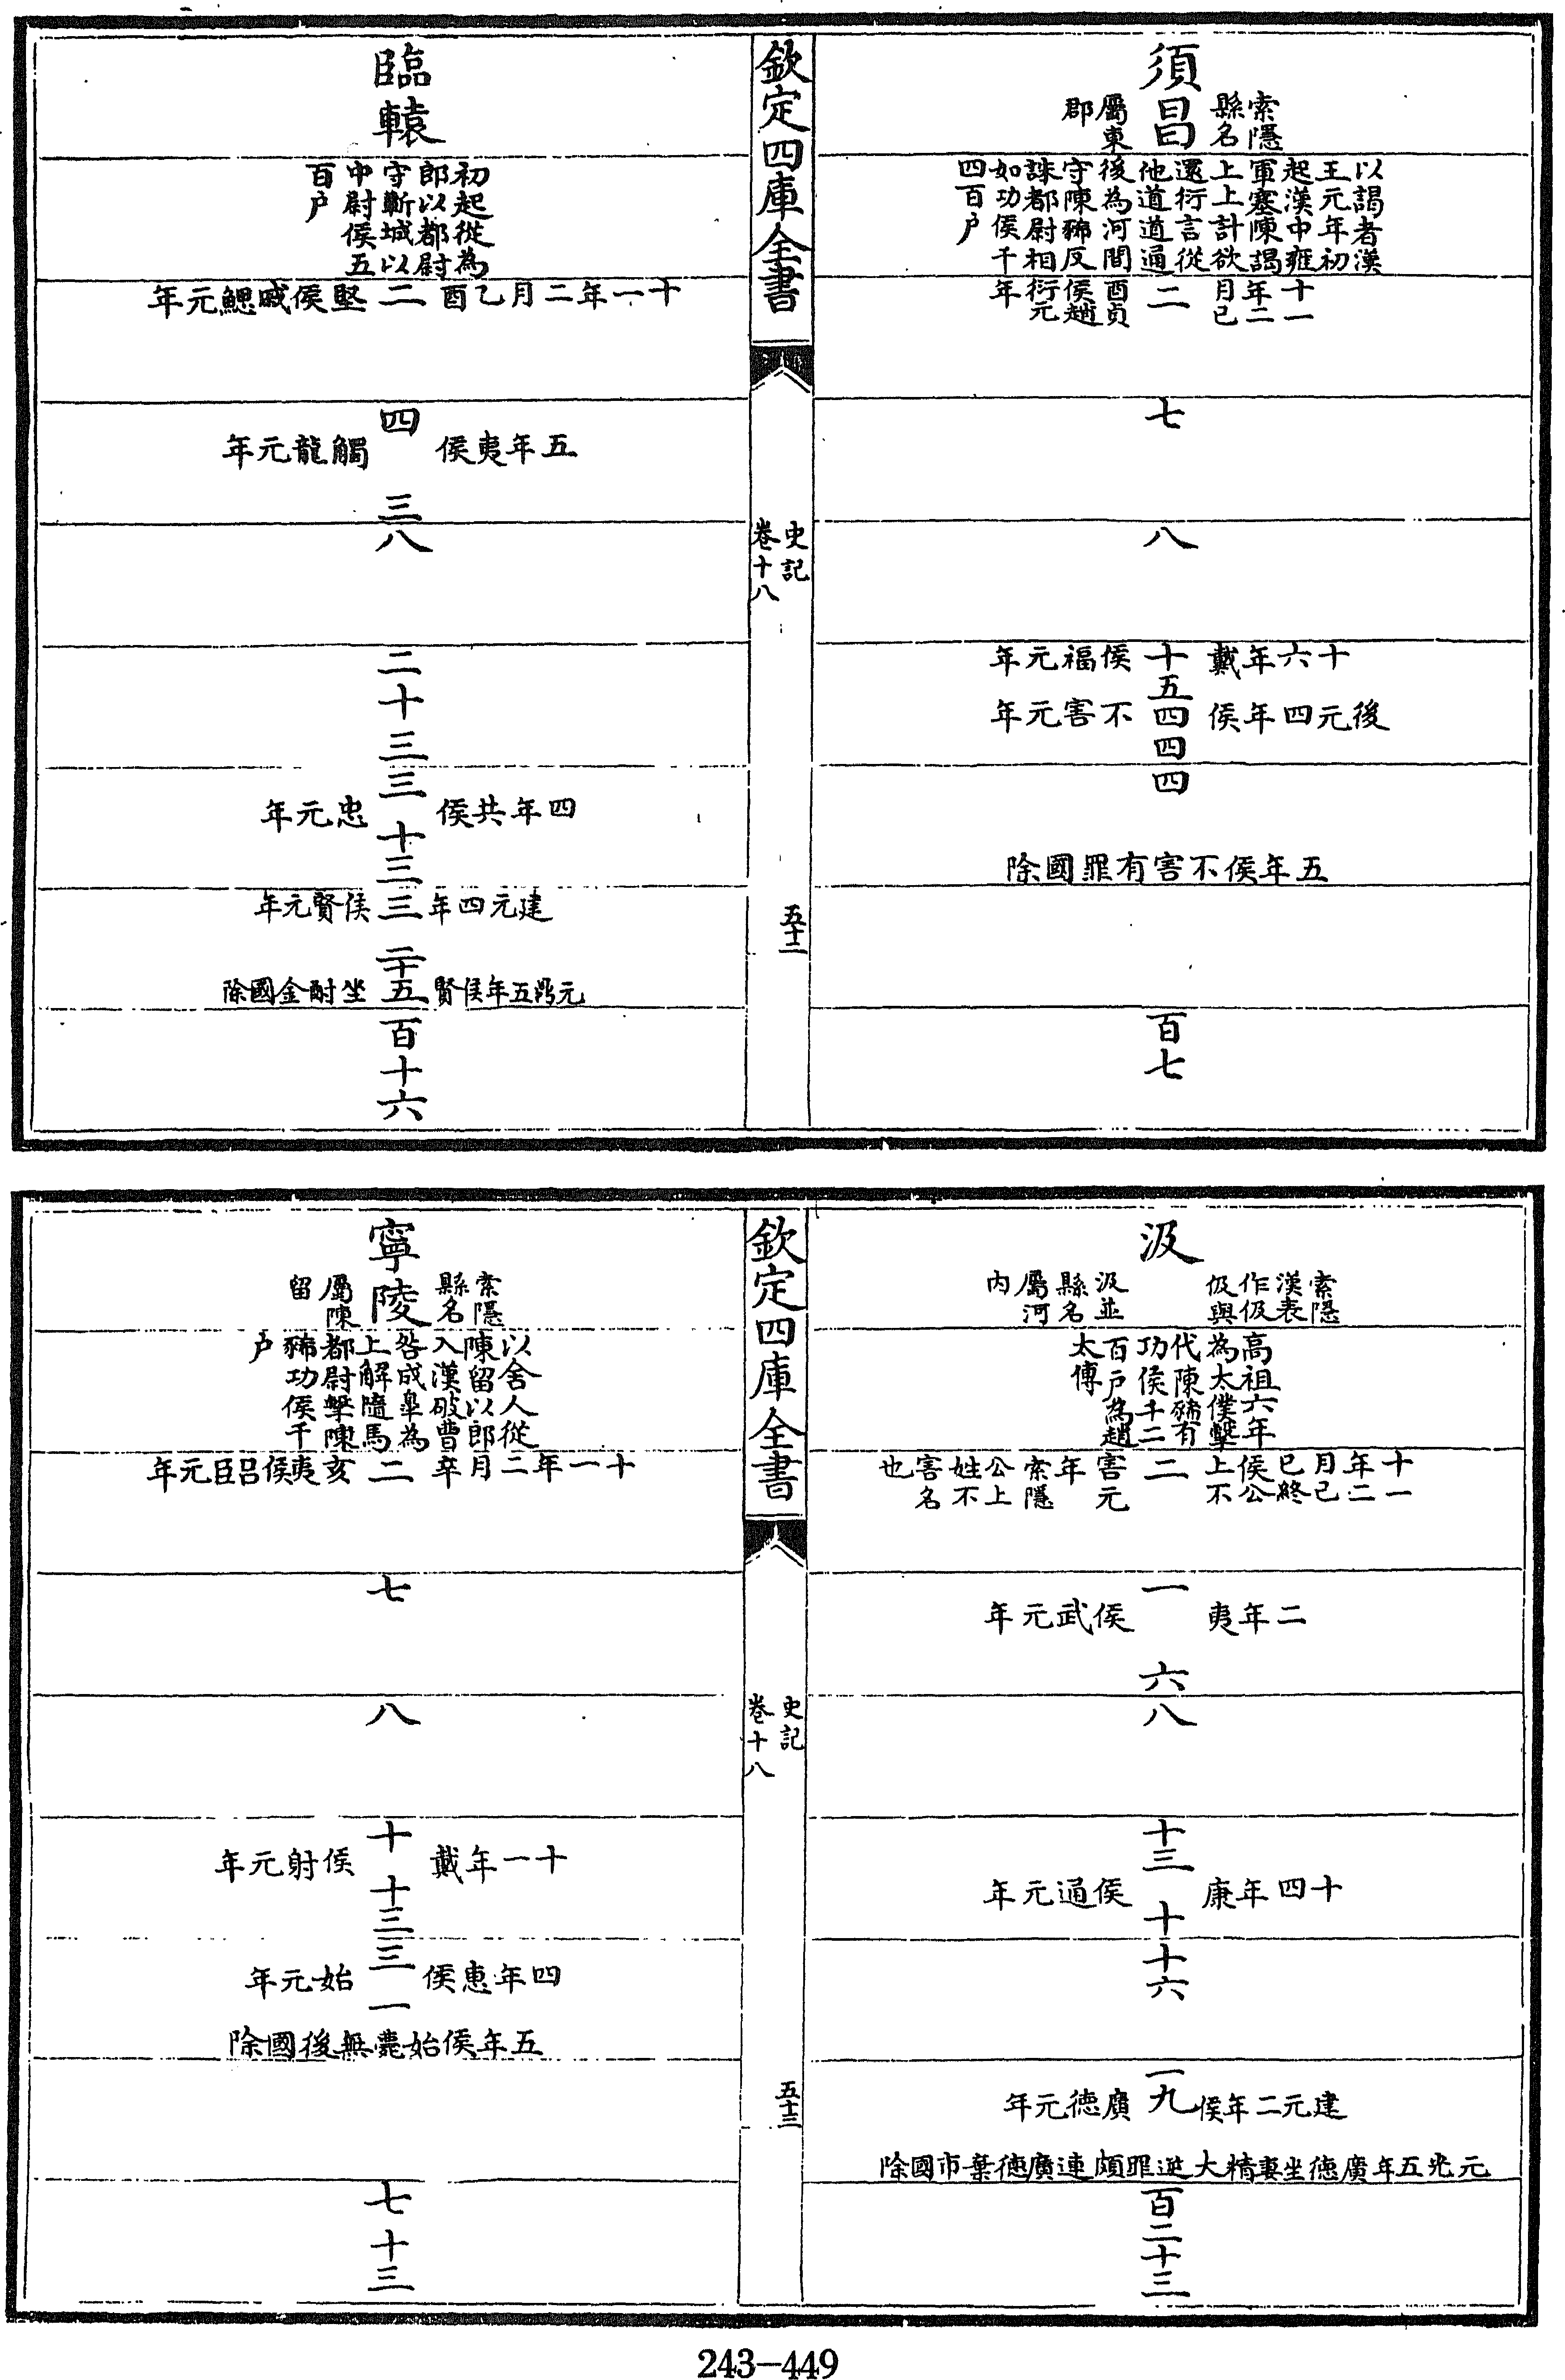 須昌
索隱縣名屬東郡
以謁者漢王元年初起漢中雍軍塞陳謁上上計欲還衍言從他道道通後為河間守陳豨反誅都尉相如功侯千四百户
二
十一年二月己酉貞侯趙衍元年
七
八
十五
十六年戴侯福元年
四
後元四年侯不害元年
四
四
五年侯不害有罪國除
百七
欽定四庫全書
史記
卷十八
五十二
臨轅
初起從為郎以都尉守蘄城以中尉侯五百户
二
十一年二月乙酉堅侯戚鰓元年
四
五年夷侯觸龍元年
三
八
二十三
三
四年共侯忠元年
十三
三
建元四年侯賢元年
二十五
元鼎五年侯賢坐酎金國除
百十六
汲
索隱漢表作伋伋與汲並縣名屬河內
高祖六年為太僕擊代陳豨有功侯千二百户為趙太傅
二
十一年二月己巳終侯公上不害元年
索隱公上姓不害名也
一
二年夷侯武元年
六
八
十三
十四年康侯通元年
十
十六
一
建元二年侯廣德元年
九
元光五年廣德坐妻精大逆罪頗連廣德棄市國除
百二十三
欽定四庫全書
史記
卷十八
五十三
寧陵
索隱縣名屬陳留
以舍人從陳留以郎入漢破曹咎成臯為上解隨馬都尉擊陳豨功侯千户
二
十一年二月辛亥夷侯呂臣元年
七
八
十
十一年戴侯射元年
十三
三
四年惠侯始元年
一
五年侯始薨無後國除
七十三
243-449